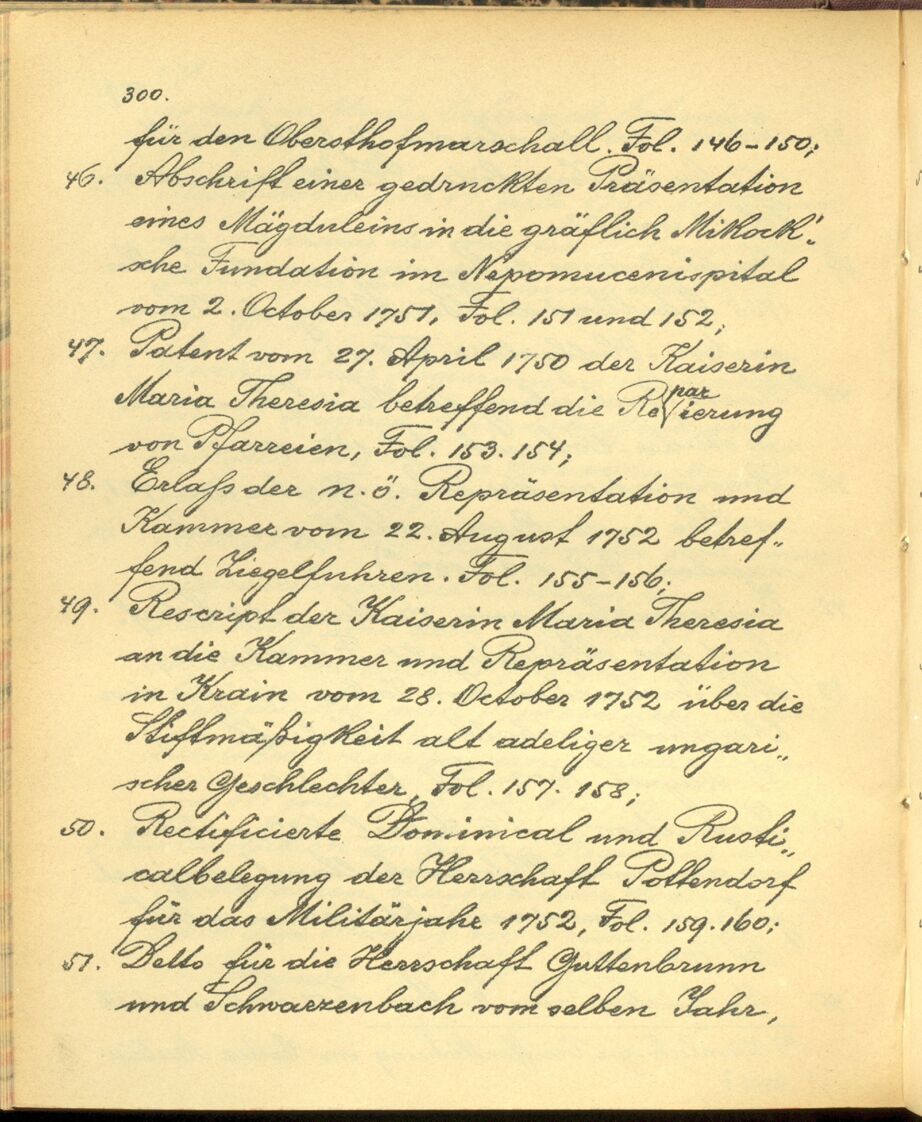 300.
für den Obersthofmarschall. Fol. 146–150;
46. Abschrift einer gedruckten Präsentation
eines Mägduleins in die gräflich Mikock'„
sche Fundation im Nepomucenispital
vom 2. October 1751, Fol. 151 und 152;
47. Patent vom 27. April 1750 der Kaiserin
Maria Theresia betreffend die Reparierung
von Pfarreien, Fol. 153. 154;
48. Erlaß der n. ö. Repräsentation und
Kammer vom 22. August 1752 betref„
fend Ziegelfuhren. Fol. 155–156;
49. Rescript der Kaiserin Maria Theresia
an die Kammer und Repräsentation
in Krain vom 28. October 1752 über die
Stiftmäßigkeit alt adeliger ungari„
scher Geschlechter, Fol. 157. 158;
50. Rectificierte Dominical und Rusti„
calbelegung der Herrschaft Pottendorf
für das Militärjahr 1752, Fol. 159. 160;
51. Detto für die Herrschaft Guttenbrunn
und Schwarzenbach vom selben Jahr,